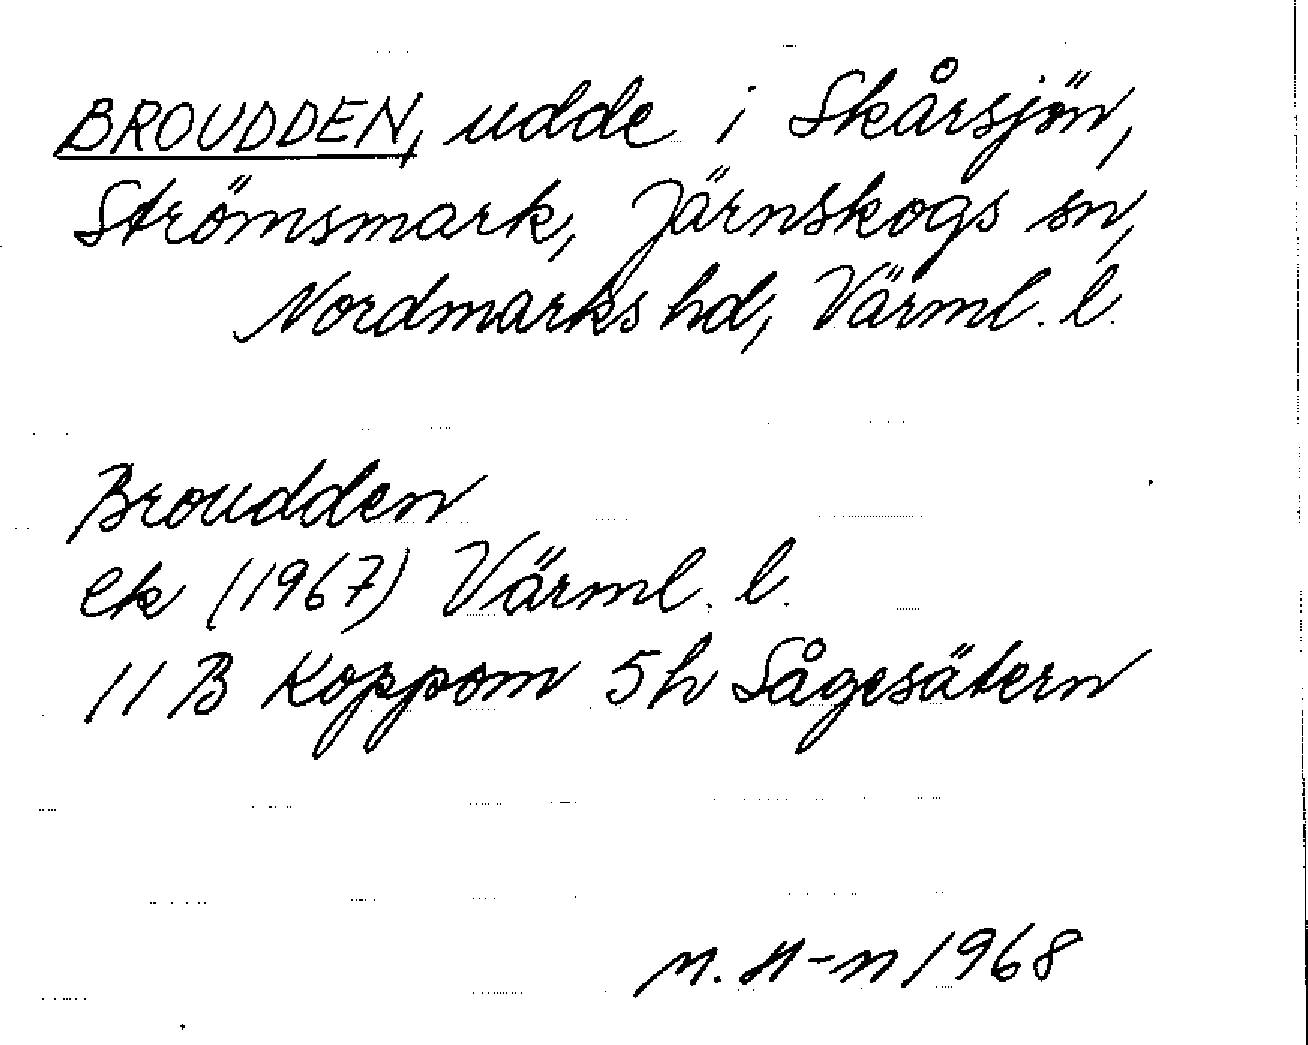 BROUDDEN, udde i Skårsjön,
Strömsmark, Järnskogs sn,
Nordmarks hd, Värml. l.
Broudden
ek (1967) Värml. l.
11 B Koppom 5h Sågesätern
M. H-n 1968